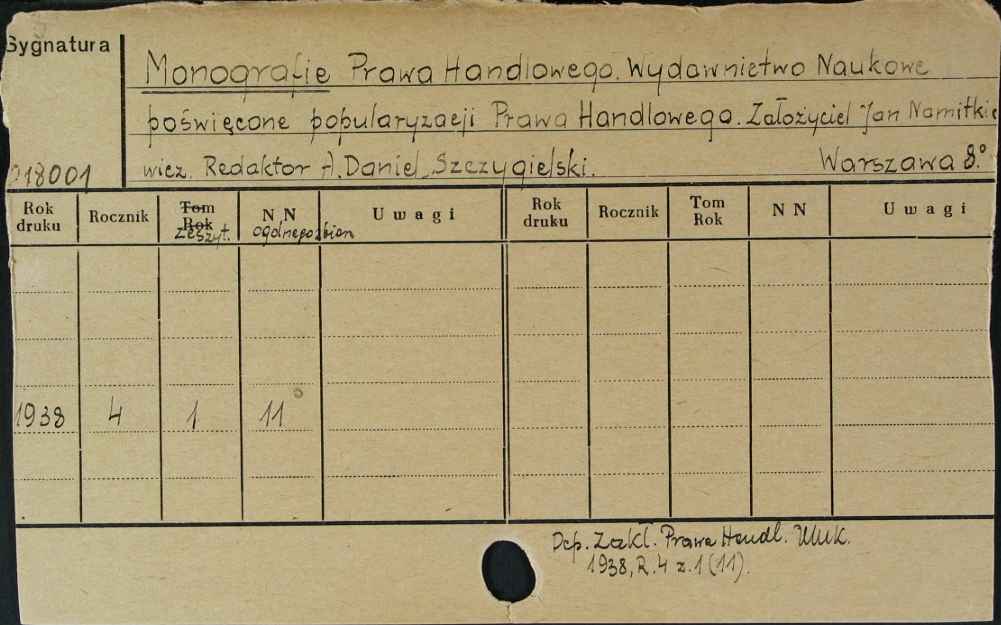 Sygnatura
Monografie Prawa Handlowego. Wydawnictwo Naukowe
poświęcone popularyzacji Prawa Handlowego. Założyciel Jan Namitkie
wicz. Redaktor A. Daniel Szczygielski. Warszawa 8.°
018001
Rok druku Rocznik Tom Rok NN Uwagi Rok druku Rocznik Tom Rok NN Uwagi
Zeszyt. ogólnego zbioru
1938 4 1 11
Dep. Zakł. Prawa Handl. UMK.
1938, R. 4 z. 1 (11).